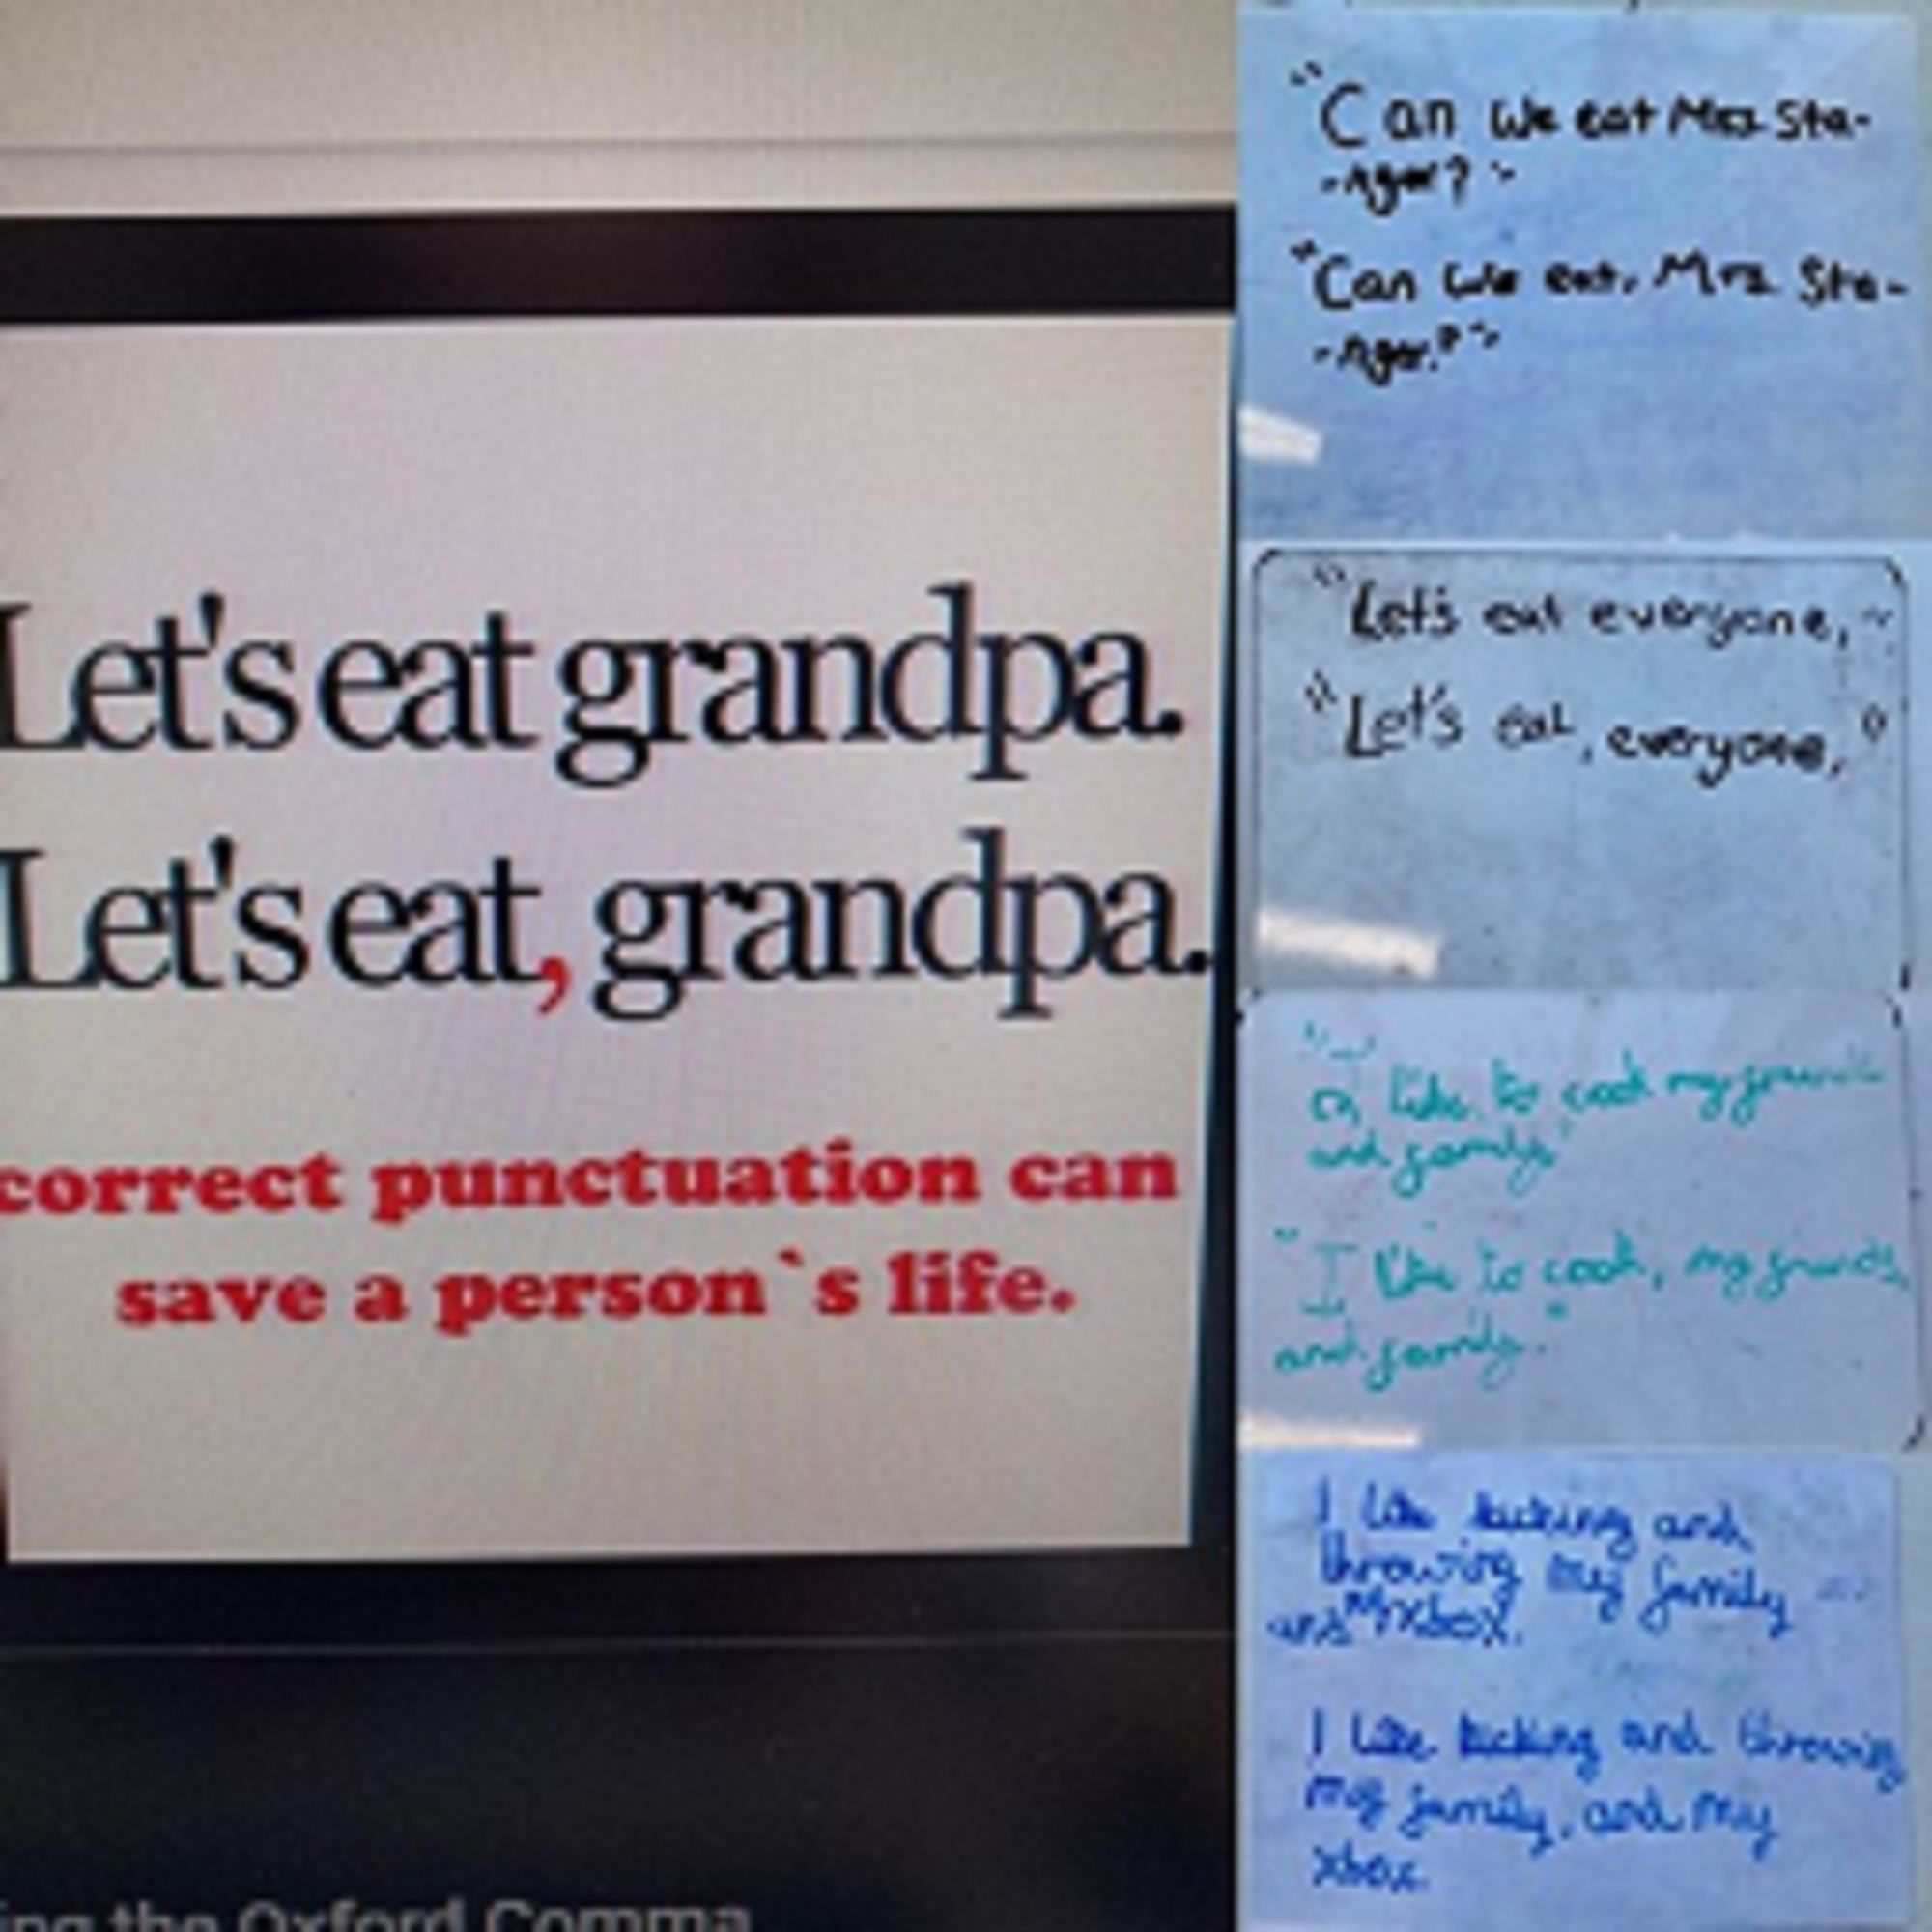 Let's eat grandpa.
Let's eat, grandpa.
correct punctuation can
save a person`s life.
ing the Oxford Comma
"Can we eat Mrs Sta-
-nger?"
"Can we eat, Mrs Sta-
-nger?"
"Let's eat everyone,"
"Let's eat, everyone,"
"I like to cook my friends
and family"
"I like to cook, my friends,
and family."
I like kicking and
throwing my family
and my xbox.
I like kicking and throwing
my family, and my
xbox.